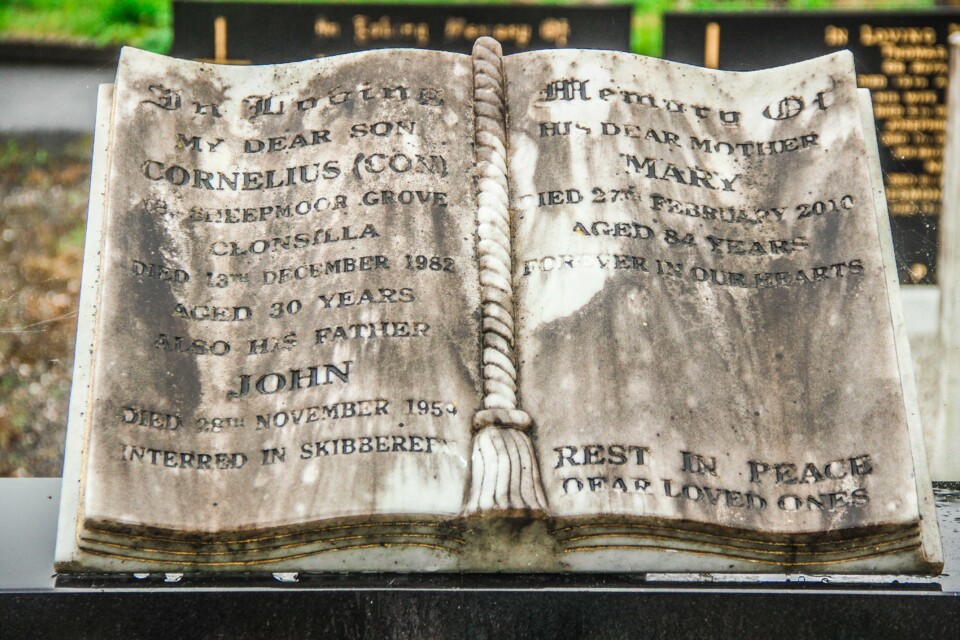 In Loving
MY DEAR SON
CORNELIUS (CON)
SHEEPMOOR GROVE
CLONSILLA
DIED 13TH DECEMBER 1982
AGED 30 YEARS
ALSO HIS FATHER
JOHN
DIED 28TH NOVEMBER
INTERRED IN SKIBBEREEN
Memory Of
HIS DEAR MOTHER
MARY
DIED 27TH FEBRUARY 2010
AGED 84 YEARS
FOREVER IN OUR HEARTS
REST IN PEACE
DEAR LOVED ONES
In Loving Memory Of
IN LOVING
THOMAS